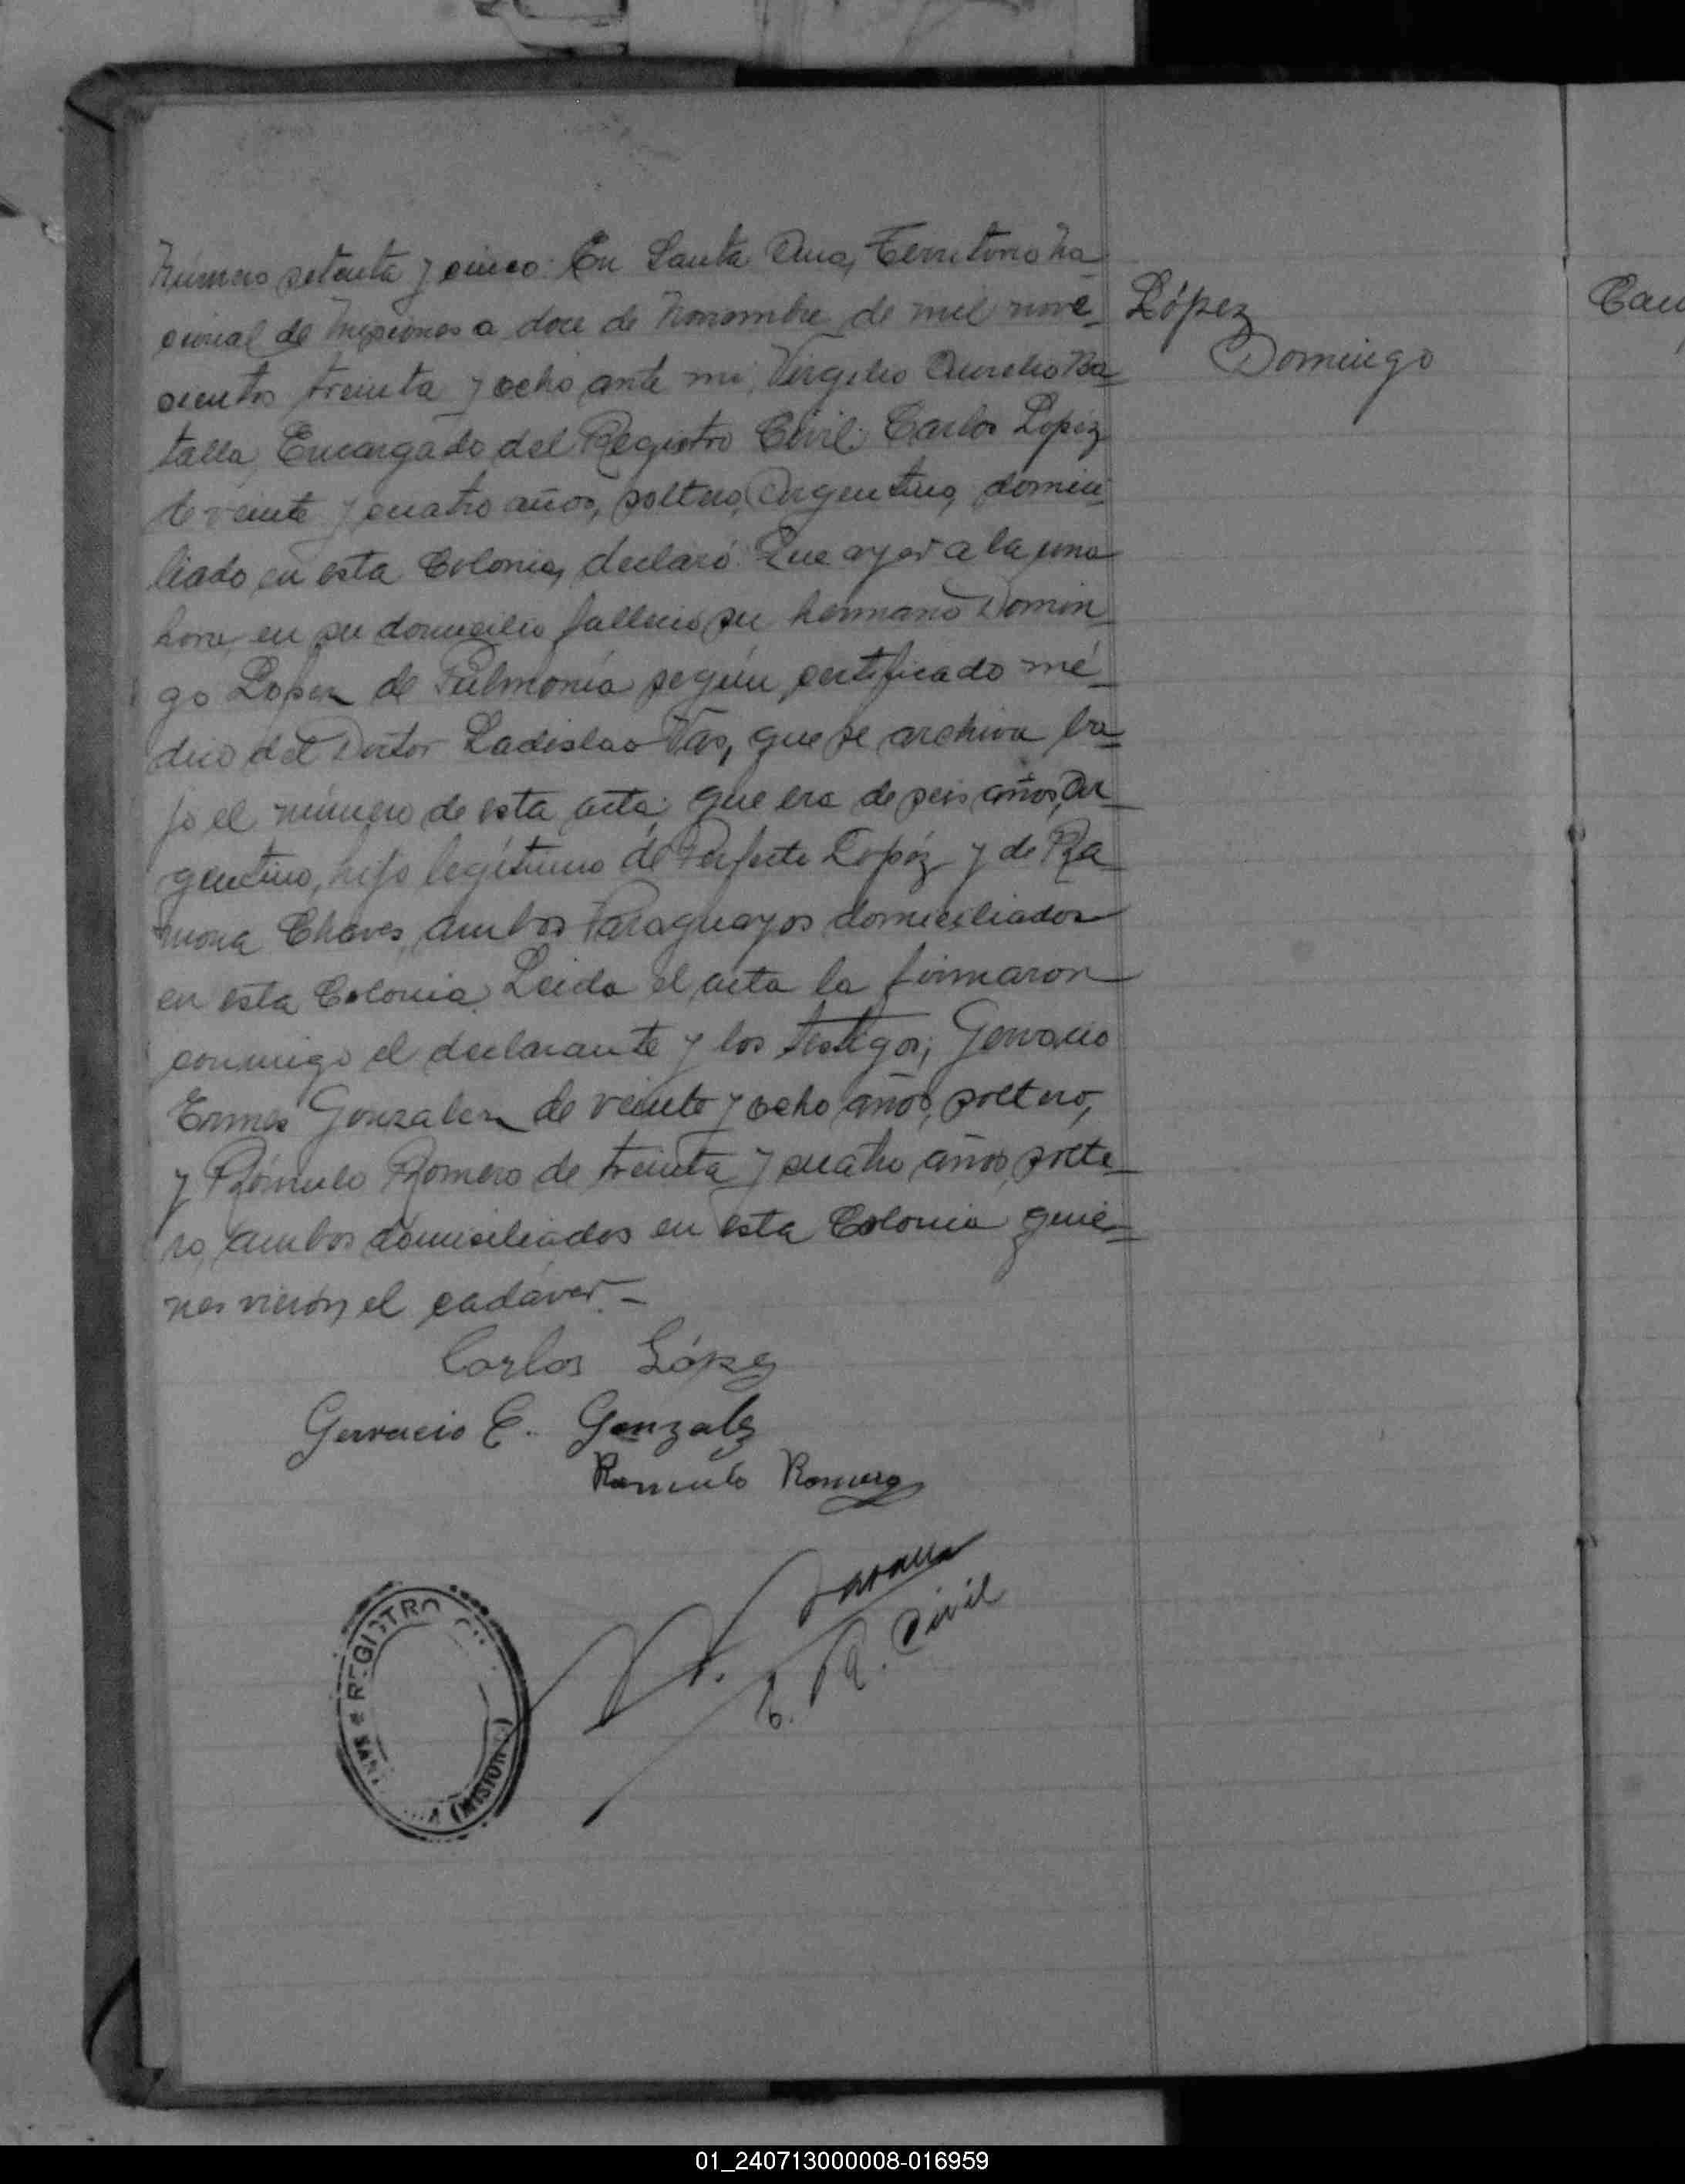 Número setenta y cinco: En Santa Ana, Territorio Na-
cional de Misiones a doce de Noviembre de mil nove-
cientos treinta y ocho ante mi, Virgilio Aurelio Ba-
talla, Encargado del Registro Civil: Carlos Lopéz
de veinte y cuatro años, soltero, Argentino, domici-
liado en esta Colonia, declaró: Que ayer a la una
hora, en su domicilio falleció su hermano Domin-
go Lopez de Pulmonía según certificado mé-
dico del Doctor Ladislao Vas, que se archiva ba-
jo el número de esta acta; que era de seis años, Ar-
gentino, hijo legítimo de Perfecto Lopéz y de Ra-
mona Chaves, ambos Paraguayos domiciliados
en esta Colonia. Leida el acta la firmaron
conmigo el declarante y los testigos; Gervacio
Ermes Gonzalez de veinte y ocho años, soltero,
y Rómulo Romero de treinta y cuatro años, solte-
ro, ambos domiciliados en esta Colonia quie-
nes vieron el cadáver.-
López
Domingo
Carlos López
Gervacio E. Gonzalez
Romulo Romero
E. R. Civil
REGISTRO
SAN
(MISION
01_240713000008-016959